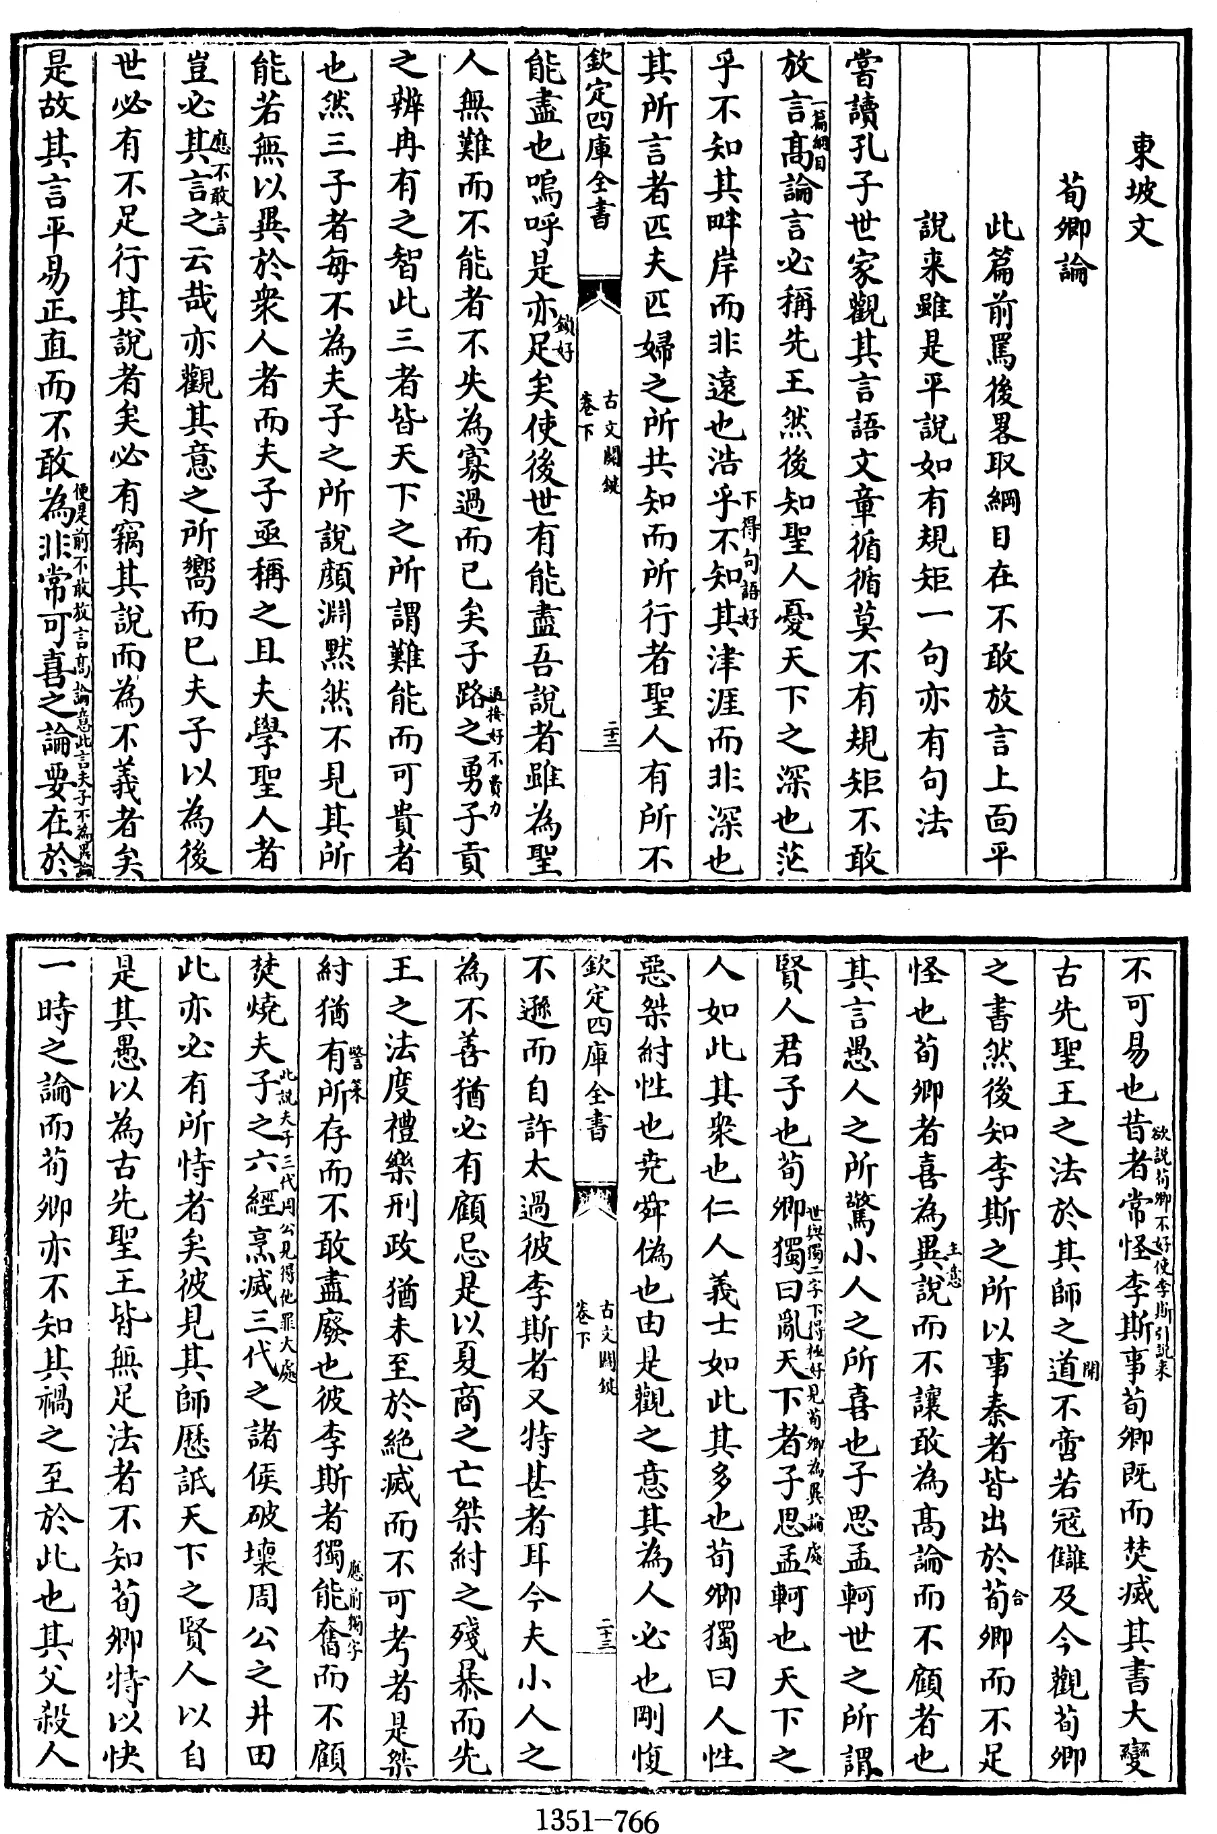 東坡文
荀卿論
此篇前罵後畧取綱目在不敢放言上面平
說来雖是平說如有規矩一句亦有句法
嘗讀孔子世家觀其言語文章循循莫不有規矩不敢
放言高論言必稱先王然後知聖人憂天下之深也茫
一篇綱目
乎不知其畔岸而非遠也浩乎不知其津涯而非深也
下得句語好
其所言者匹夫匹婦之所共知而所行者聖人有所不
欽定四庫全書
古文關鍵
卷下
二十二
能盡也嗚呼是亦足矣使後世有能盡吾說者雖為聖
鎖好
人無難而不能者不失為寡過而已矣子路之勇子貢
過接好不費力
之辨冉有之智此三者皆天下之所謂難能而可貴者
也然三子者每不為夫子之所說顔淵黙然不見其所
能若無以異於衆人者而夫子亟稱之且夫學聖人者
豈必其言之云哉亦觀其意之所嚮而已夫子以為後
應不敢言
世必有不足行其說者矣必有竊其說而為不義者矣
是故其言平易正直而不敢為非常可喜之論要在於
便是前不敢放言高論意此言夫子不為異論
不可易也昔者常怪李斯事荀卿既而焚滅其書大變
欲說荀卿不好使李斯引說来
古先聖王之法於其師之道不啻若冦讎及今觀荀卿
開
之書然後知李斯之所以事秦者皆出於荀卿而不足
合
怪也荀卿者喜為異說而不讓敢為高論而不顧者也
主意
其言愚人之所驚小人之所喜也子思孟軻世之所謂
賢人君子也荀卿獨曰亂天下者子思孟軻也天下之
世與獨二字下得極好見荀卿為異論處
人如此其衆也仁人義士如此其多也荀卿獨曰人性
惡桀紂性也堯舜偽也由是觀之意其為人必也剛愎
欽定四庫全書
古文關鍵
卷下
二十三
不遜而自許太過彼李斯者又特甚者耳今夫小人之
為不善猶必有顧忌是以夏商之亡桀紂之殘暴而先
王之法度禮樂刑政猶未至於絶滅而不可考者是桀
紂猶有所存而不敢盡廢也彼李斯者獨能奮而不顧
警策
應前獨字
焚燒夫子之六經烹滅三代之諸侯破壞周公之井田
此說夫子三代周公見得他罪大處
此亦必有所恃者矣彼見其師歴詆天下之賢人以自
是其愚以為古先聖王皆無足法者不知荀卿特以快
一時之論而荀卿亦不知其禍之至於此也其父殺人
1351-766